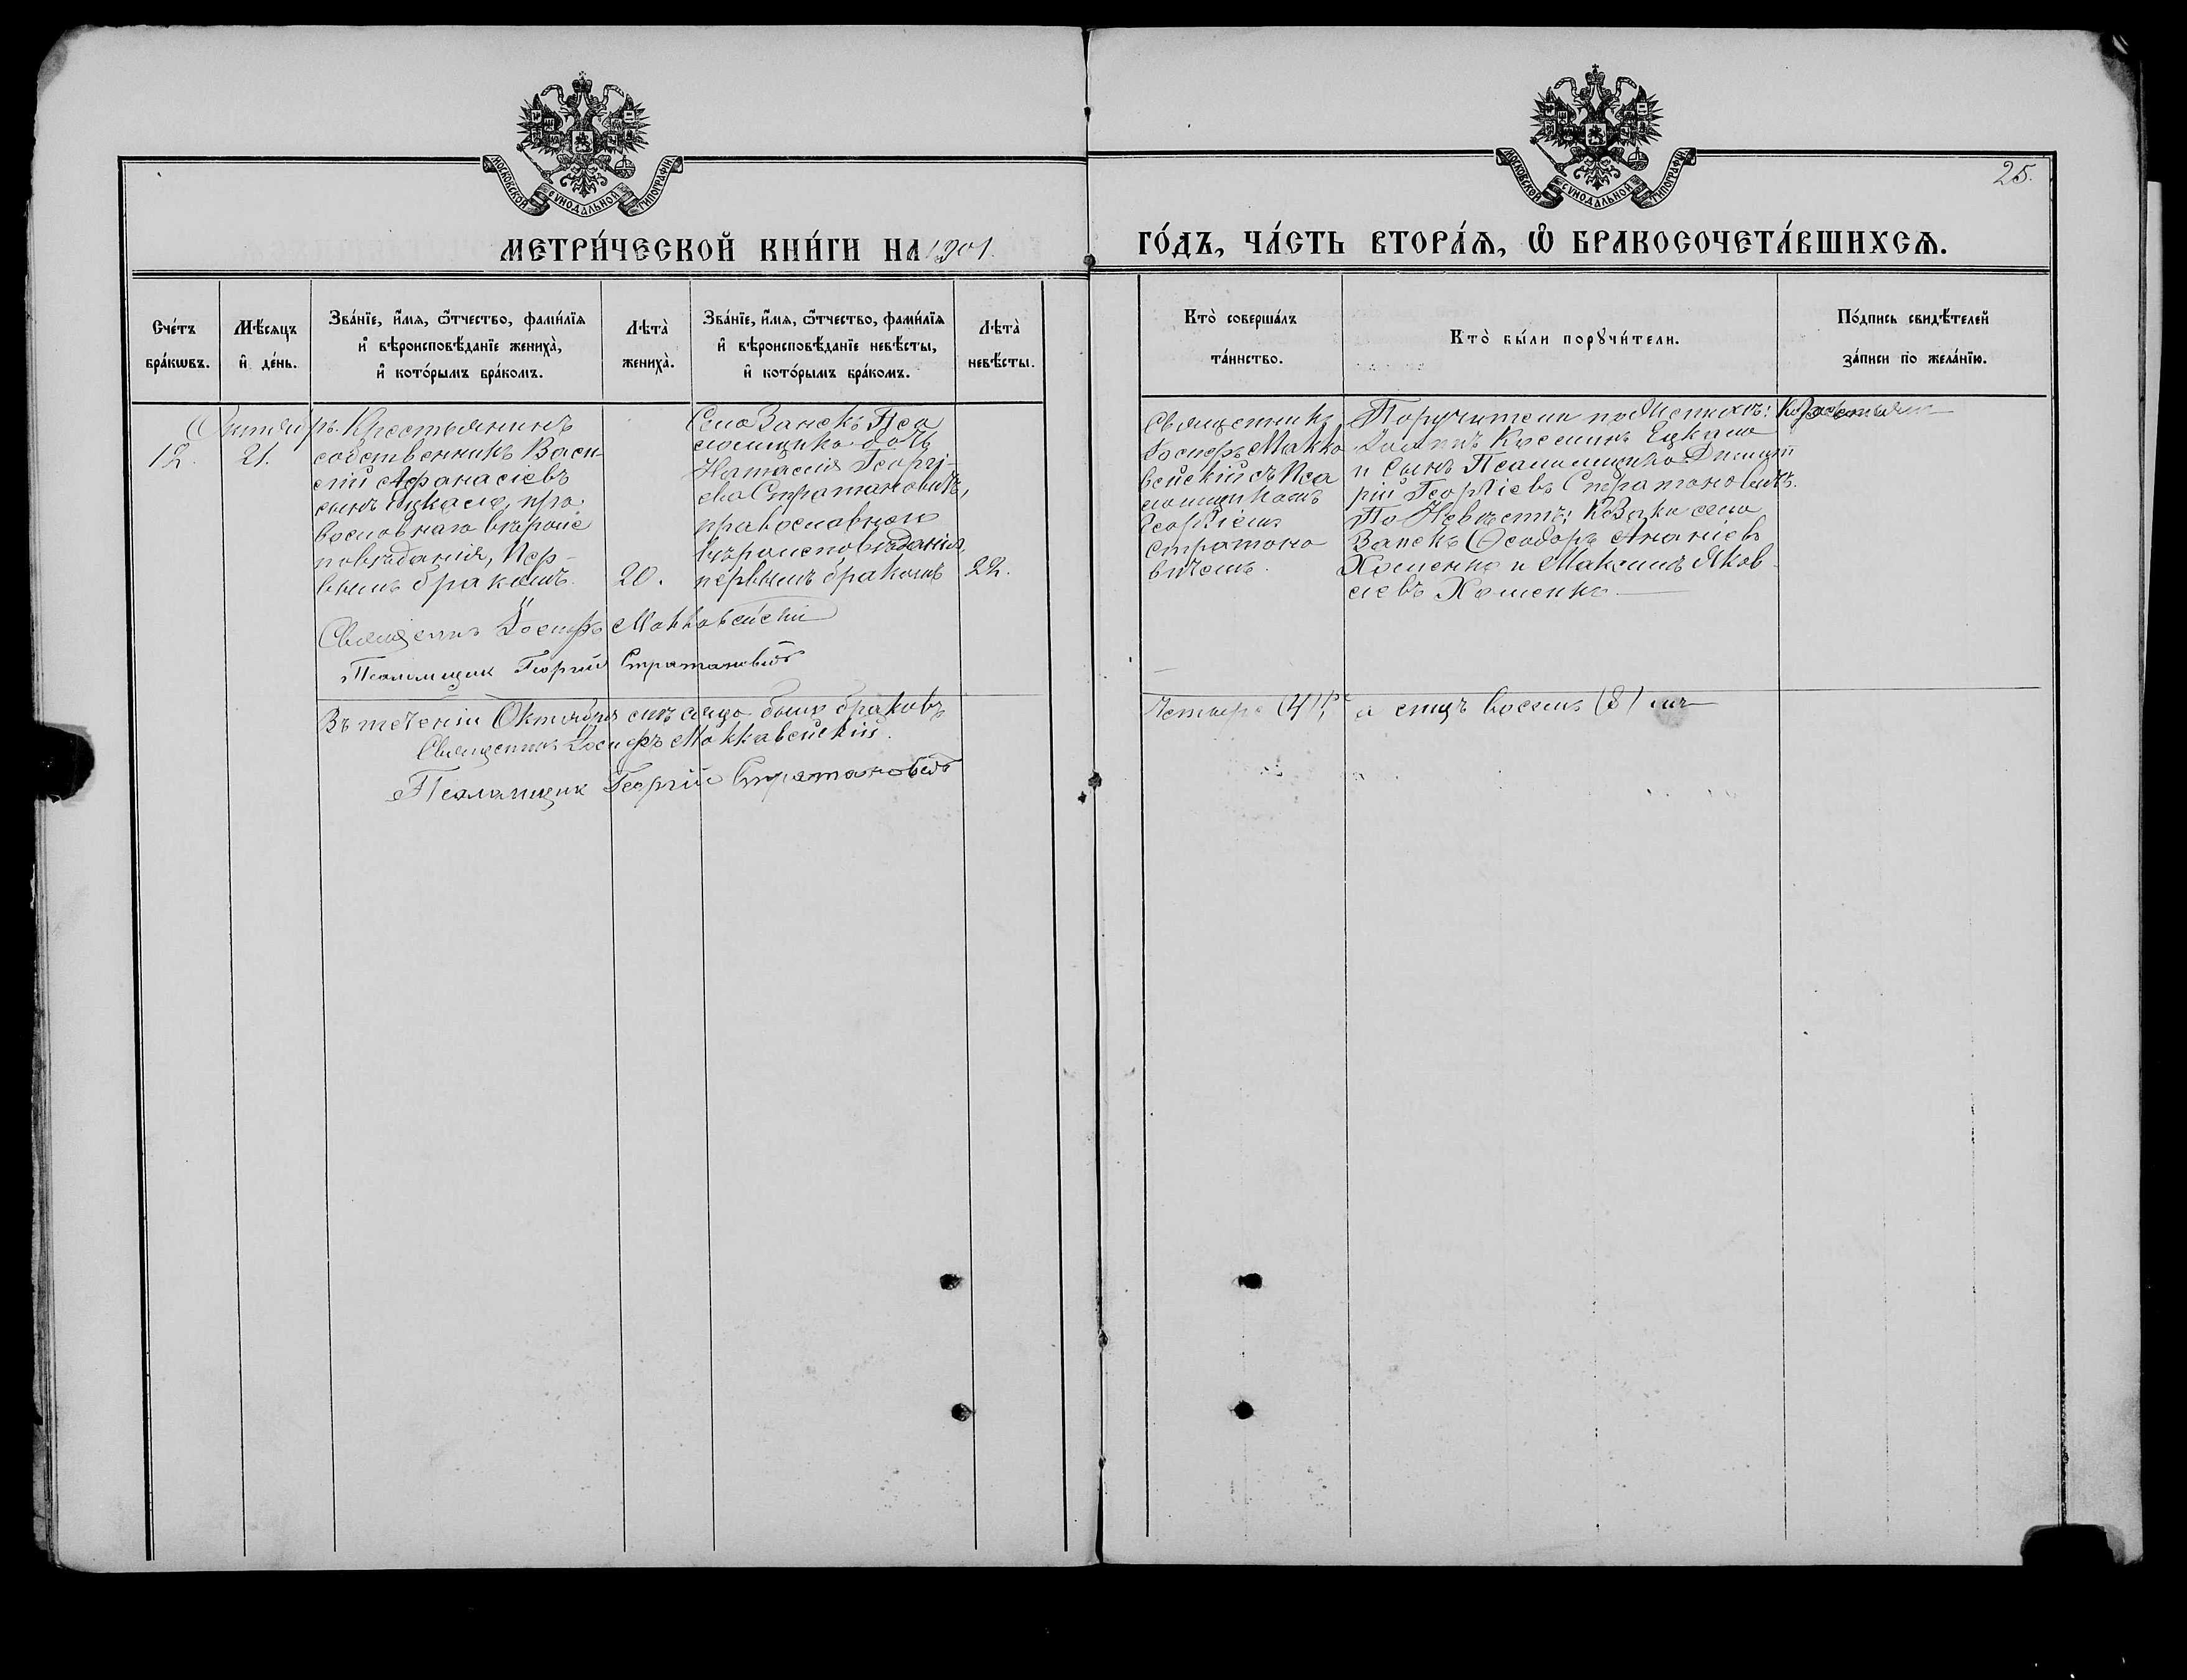 МОСКОВСКОЙ СѴНОДАЛЬНОЙ ТИПОГРАФІИ
МОСКОВСКОЙ СѴНОДАЛЬНОЙ ТИПОГРАФІИ
25.
МЕТРИ́ЧЕСКОЙ КНИ́ГИ НА 1901.
ГО́ДЪ, ЧА́СТЬ ВТОРА́Я, Ѿ БРАКОСОЧЕТА́ВШИХСЯ.
Сче́тъ
бра́кѡвъ.
Мѣ́сяцъ
и҆ де́нь.
Зва́нїе, и҆́мя, ѻ҆́тчество, фами́лїя
и҆ вѣроисповѣ́данїе жениха̀,
и҆ кото́рымъ бра́комъ.
Лѣта̀
жениха̀.
Зва́нїе, и҆́мя, ѻ҆́тчество, фами́лїя
и҆ вѣроисповѣ́данїе невѣ́сты,
и҆ кото́рымъ бра́комъ.
Лѣта̀
невѣ́сты.
Кто̀ соверша́лъ
та́инство.
Кто̀ бы́ли порꙋчи́тели.
По́дпись свидѣ́телей
за́писи по жела́нїю.
Октябрь
12.
21.
Крестьянинъ
собственникъ Васи-
лій Афанасіевъ
сынъ Ецкало, пра-
вославнаго вѣроис
повѣданія, пер-
вымъ бракомъ.
20.
Села Занскъ Пса
ломщика дочь
Наталія Георгі-
ева Стратановичъ,
православнаго
вѣроисповѣданія,
первымъ бракомъ
22.
Священникъ
Іосифъ Макка
вейскій съ Пса
ломщикомъ
Георгіем
Стратано
вичемъ.
Поручители по Женихѣ: Крестьяне
Козминъ Ецкало
и сынъ Псаломщика Димит
рій Георгіевъ Стратановичъ.
По Невѣстѣ: Козаки села
Занскъ Ѳеодоръ Ананіевъ
Хоменко и Максимъ Яков
левъ Хоменко
Священникъ Іосифъ Маккавейскій
Псаломщик Георгий Стратановичъ
Въ теченіи Октября мѣсяца было браковъ
Четыре (4), а лицъ восемь (8)
Священникъ Іосифъ Маккавейскій.
Псаломщик Георгій Стратановичъ